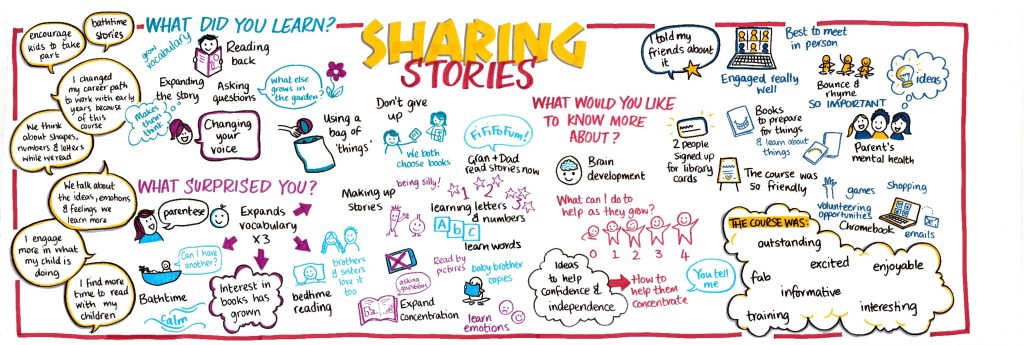 SHARING
STORIES
encourage
kids to take
part
bathtime
stories
I changed
my career path
to work with early
years because of
this course
We think
about shapes,
numbers & letters
while we read
We talk about
the ideas, emotions
& feelings we
learn more
I engage
more in what
my child is
doing
I find more
time to read
with my
children
WHAT DID YOU LEARN?
grow
vocabulary
Reading
back
Expanding
the story
Asking
questions
What else
grows in
the garden?
Makes
them
think
Changing
your
voice
Using a
bag of
'things'
WHAT SURPRISED YOU?
parentese
Expands
vocabulary
x 3
Can I have
another?
Bathtime
Calm
Interest in
books has
grown
brothers
& sisters
love it
too
bedtime
reading
Don't give
up
We both
choose books
Fi Fi Fo Fum!
Gran + Dad
read stories now
Making up
stories
being silly!
1 2 3
learning letters
& numbers
A b C
learn words
Read by
pictures
asking
questions
Expand
Concentration
baby brother
copies
learn
emotions
WHAT WOULD YOU LIKE
TO KNOW MORE
ABOUT?
Brain
development
What can I do to
help as they grow?
0 1 2 3 4
Ideas
to help
confidence &
independence
How to
help them
concentrate
You tell
me
I told my
friends about
it
Best to meet
in person
Engaged really
well
Bounce &
rhyme
SO IMPORTANT
ideas
2 people
signed up
for library
cards
Books
to prepare
for things
& learn about
things
Parent's
mental health
The course was
so friendly
games
Shopping
volunteering
opportunities
Chromebook
emails
THE COURSE WAS:
outstanding
excited
enjoyable
fab
informative
training
interesting